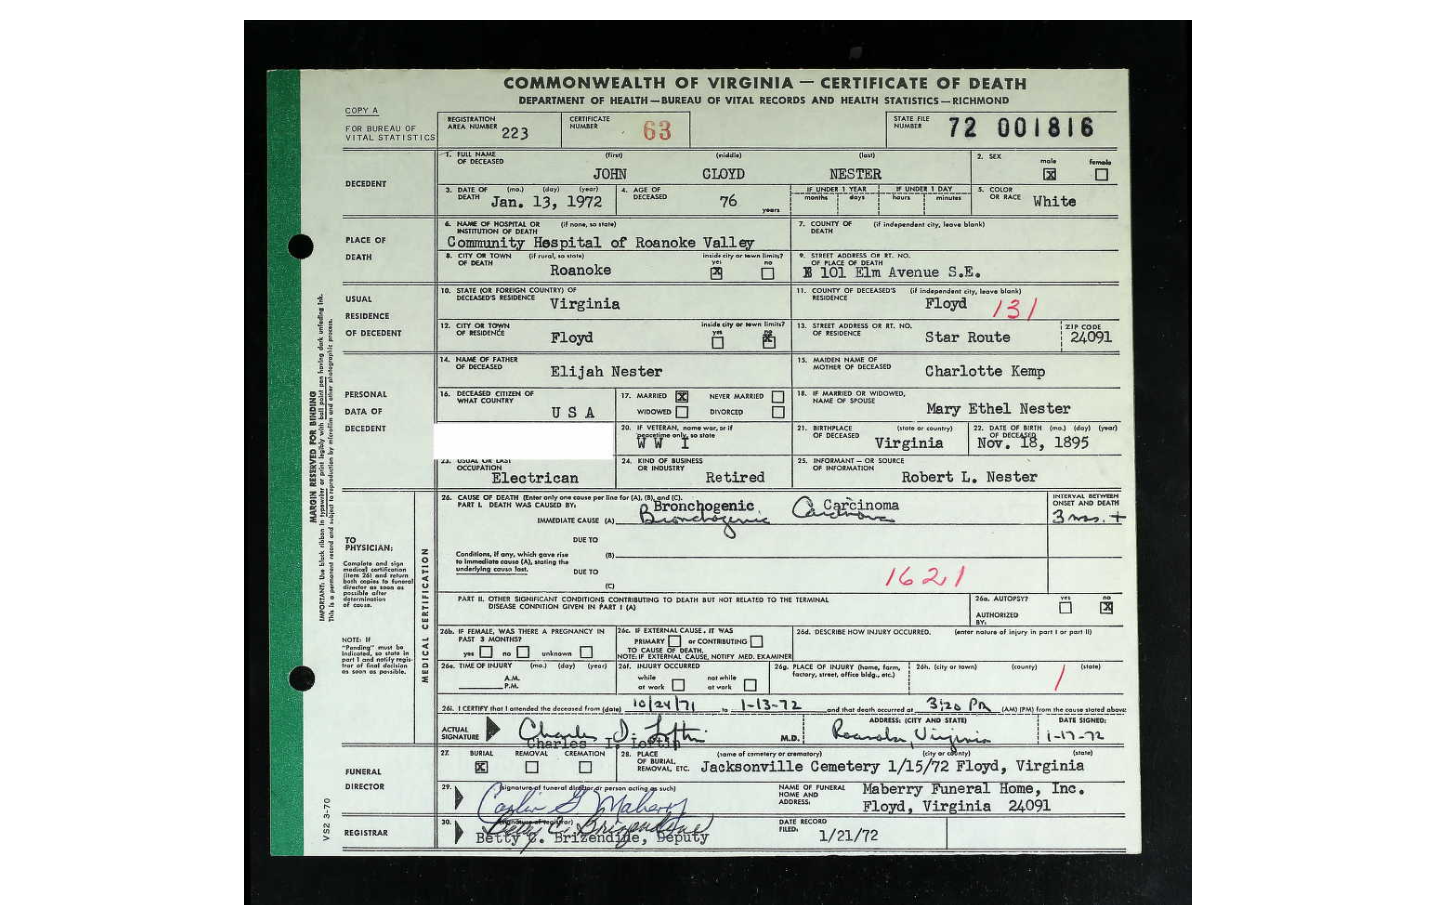 COMMONWEALTH OF VIRGINIA — CERTIFICATE OF DEATH
DEPARTMENT OF HEALTH—BUREAU OF VITAL RECORDS AND HEALTH STATISTICS—RICHMOND
COPY A
FOR BUREAU OF VITAL STATISTICS
REGISTRATION AREA NUMBER 223
CERTIFICATE NUMBER 63
STATE FILE NUMBER 72 001816
DECEDENT
1. FULL NAME OF DECEASED (first) (middle) (last)
JOHN CLOYD NESTER
2. SEX male ☒ female ☐
3. DATE OF DEATH (mo.) (day) (year) Jan. 13, 1972
4. AGE OF DECEASED 76 years
IF UNDER 1 YEAR months days
IF UNDER 1 DAY hours minutes
5. COLOR OR RACE White
PLACE OF DEATH
6. NAME OF HOSPITAL OR INSTITUTION OF DEATH (if none, so state)
Community Hospital of Roanoke Valley
7. COUNTY OF DEATH (if independent city, leave blank)
8. CITY OR TOWN OF DEATH (if rural, so state) Roanoke
inside city or town limits? yes ☒ no ☐
9. STREET ADDRESS OR RT. NO. OF PLACE OF DEATH
101 Elm Avenue S.E.
USUAL RESIDENCE OF DECEDENT
10. STATE (OR FOREIGN COUNTRY) OF DECEASED'S RESIDENCE Virginia
11. COUNTY OF DECEASED'S RESIDENCE (if independent city, leave blank) Floyd 131
12. CITY OR TOWN OF RESIDENCE Floyd
inside city or town limits? yes ☐ no ☒
13. STREET ADDRESS OR RT. NO. OF RESIDENCE Star Route
ZIP CODE 24091
PERSONAL DATA OF DECEDENT
14. NAME OF FATHER OF DECEASED Elijah Nester
15. MAIDEN NAME OF MOTHER OF DECEASED Charlotte Kemp
16. DECEASED CITIZEN OF WHAT COUNTRY U S A
17. MARRIED ☒ NEVER MARRIED ☐
WIDOWED ☐ DIVORCED ☐
18. IF MARRIED OR WIDOWED, NAME OF SPOUSE Mary Ethel Nester
20. IF VETERAN, name war, or if peacetime only, so state W W I
21. BIRTHPLACE OF DECEASED (state or country) Virginia
22. DATE OF BIRTH OF DECEASED (mo.) (day) (year) Nov. 18, 1895
23. USUAL OR LAST OCCUPATION Electrican
24. KIND OF BUSINESS OR INDUSTRY Retired
25. INFORMANT — OR SOURCE OF INFORMATION Robert L. Nester
MARGIN RESERVED FOR BINDING
IMPORTANT: Use black ribbon in typewriter or print legibly with ball point pen having dark unfading ink.
This is a permanent record and subject to reproduction by microfilm and other photographic process.
TO PHYSICIAN:
Complete and sign medical certification (item 26) and return both copies to funeral director as soon as possible after determination of cause.
NOTE: IF "Pending" must be indicated, so state in part I and notify registrar of final decision as soon as possible.
MEDICAL CERTIFICATION
26. CAUSE OF DEATH (Enter only one cause per line for (A), (B), and (C).
PART I. DEATH WAS CAUSED BY:
IMMEDIATE CAUSE (A)
Bronchogenic Carcinoma
Bronchogenic Carcinoma
INTERVAL BETWEEN ONSET AND DEATH
3 mos. +
DUE TO
Conditions, if any, which gave rise to immediate cause (A), stating the underlying cause last.
(B)
DUE TO
(C)
1621
PART II. OTHER SIGNIFICANT CONDITIONS CONTRIBUTING TO DEATH BUT NOT RELATED TO THE TERMINAL DISEASE CONDITION GIVEN IN PART I (A)
26a. AUTOPSY? yes ☐ no ☒
AUTHORIZED BY:
26b. IF FEMALE, WAS THERE A PREGNANCY IN PAST 3 MONTHS?
yes ☐ no ☐ unknown ☐
26c. IF EXTERNAL CAUSE, IT WAS
PRIMARY ☐ or CONTRIBUTING ☐
TO CAUSE OF DEATH.
NOTE: IF EXTERNAL CAUSE, NOTIFY MED. EXAMINER
26d. DESCRIBE HOW INJURY OCCURRED. (enter nature of injury in part I or part II)
26e. TIME OF INJURY (mo.) (day) (year)
A.M.
P.M.
26f. INJURY OCCURRED
while at work ☐ not while at work ☐
26g. PLACE OF INJURY (home, farm, factory, street, office bldg., etc.)
26h. (city or town) (county) (state)
1
26i. I CERTIFY that I attended the deceased from (date) 10/24/71 to 1-13-72 and that death occurred at 3:20 PM (AM) (PM) from the cause stated above
ACTUAL SIGNATURE Charles I. Loftin M.D.
Charles I. Loftin
ADDRESS: (CITY AND STATE) Roanoke, Virginia
DATE SIGNED: 1-17-72
FUNERAL DIRECTOR
27. BURIAL ☒ REMOVAL ☐ CREMATION ☐
28. PLACE OF BURIAL, REMOVAL, ETC. (name of cemetery or crematory) (city or county) (state)
Jacksonville Cemetery 1/15/72 Floyd, Virginia
29. (signature of funeral director or person acting as such)
Maberry
NAME OF FUNERAL HOME AND ADDRESS: Maberry Funeral Home, Inc.
Floyd, Virginia 24091
REGISTRAR
30. (signature of registrar)
Betty C. Brizendine
Betty C. Brizendine, Deputy
DATE RECORD FILED: 1/21/72
VS2 3-70